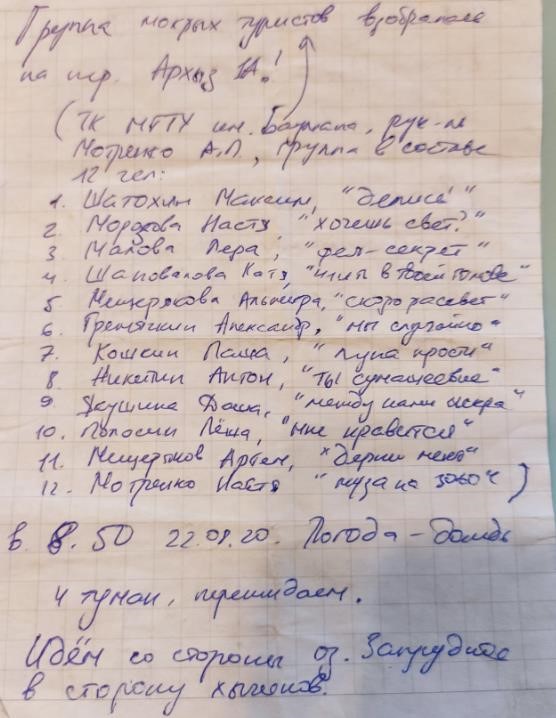 Группа мокрых туристов взобралась
на пер. Архыз 1А!
(ТК МГТУ им. Баумана, рук-ль
Мотренко А.П., группа в составе
12 чел:
1. Шатохин Максим,
2. Морозова Настя, "хочешь свет?"
3. Малова Лера, "фел-секрет"
4. Шаповалова Катя, в твоей голове"
5 Мещерякова Альбира, "скоро рассвет"
6. Гремячкин Александр, "мы случайно"
7. Кошкин Паша, "луна прости"
8. Никитин Антон, "ты сумашеевие"
9 Якушина Даша, "между нами искра"
10. Полосин Лёша, "мне нравится"
11. Мещеряков Артём, "держи меня"
12. Мотренко Настя "муза на зовоч")
в 8.50 22.08.20. Погода - дождь
и туман, пережидаем.
Идём со стороны оз. Запрудное
в сторону хычинов.